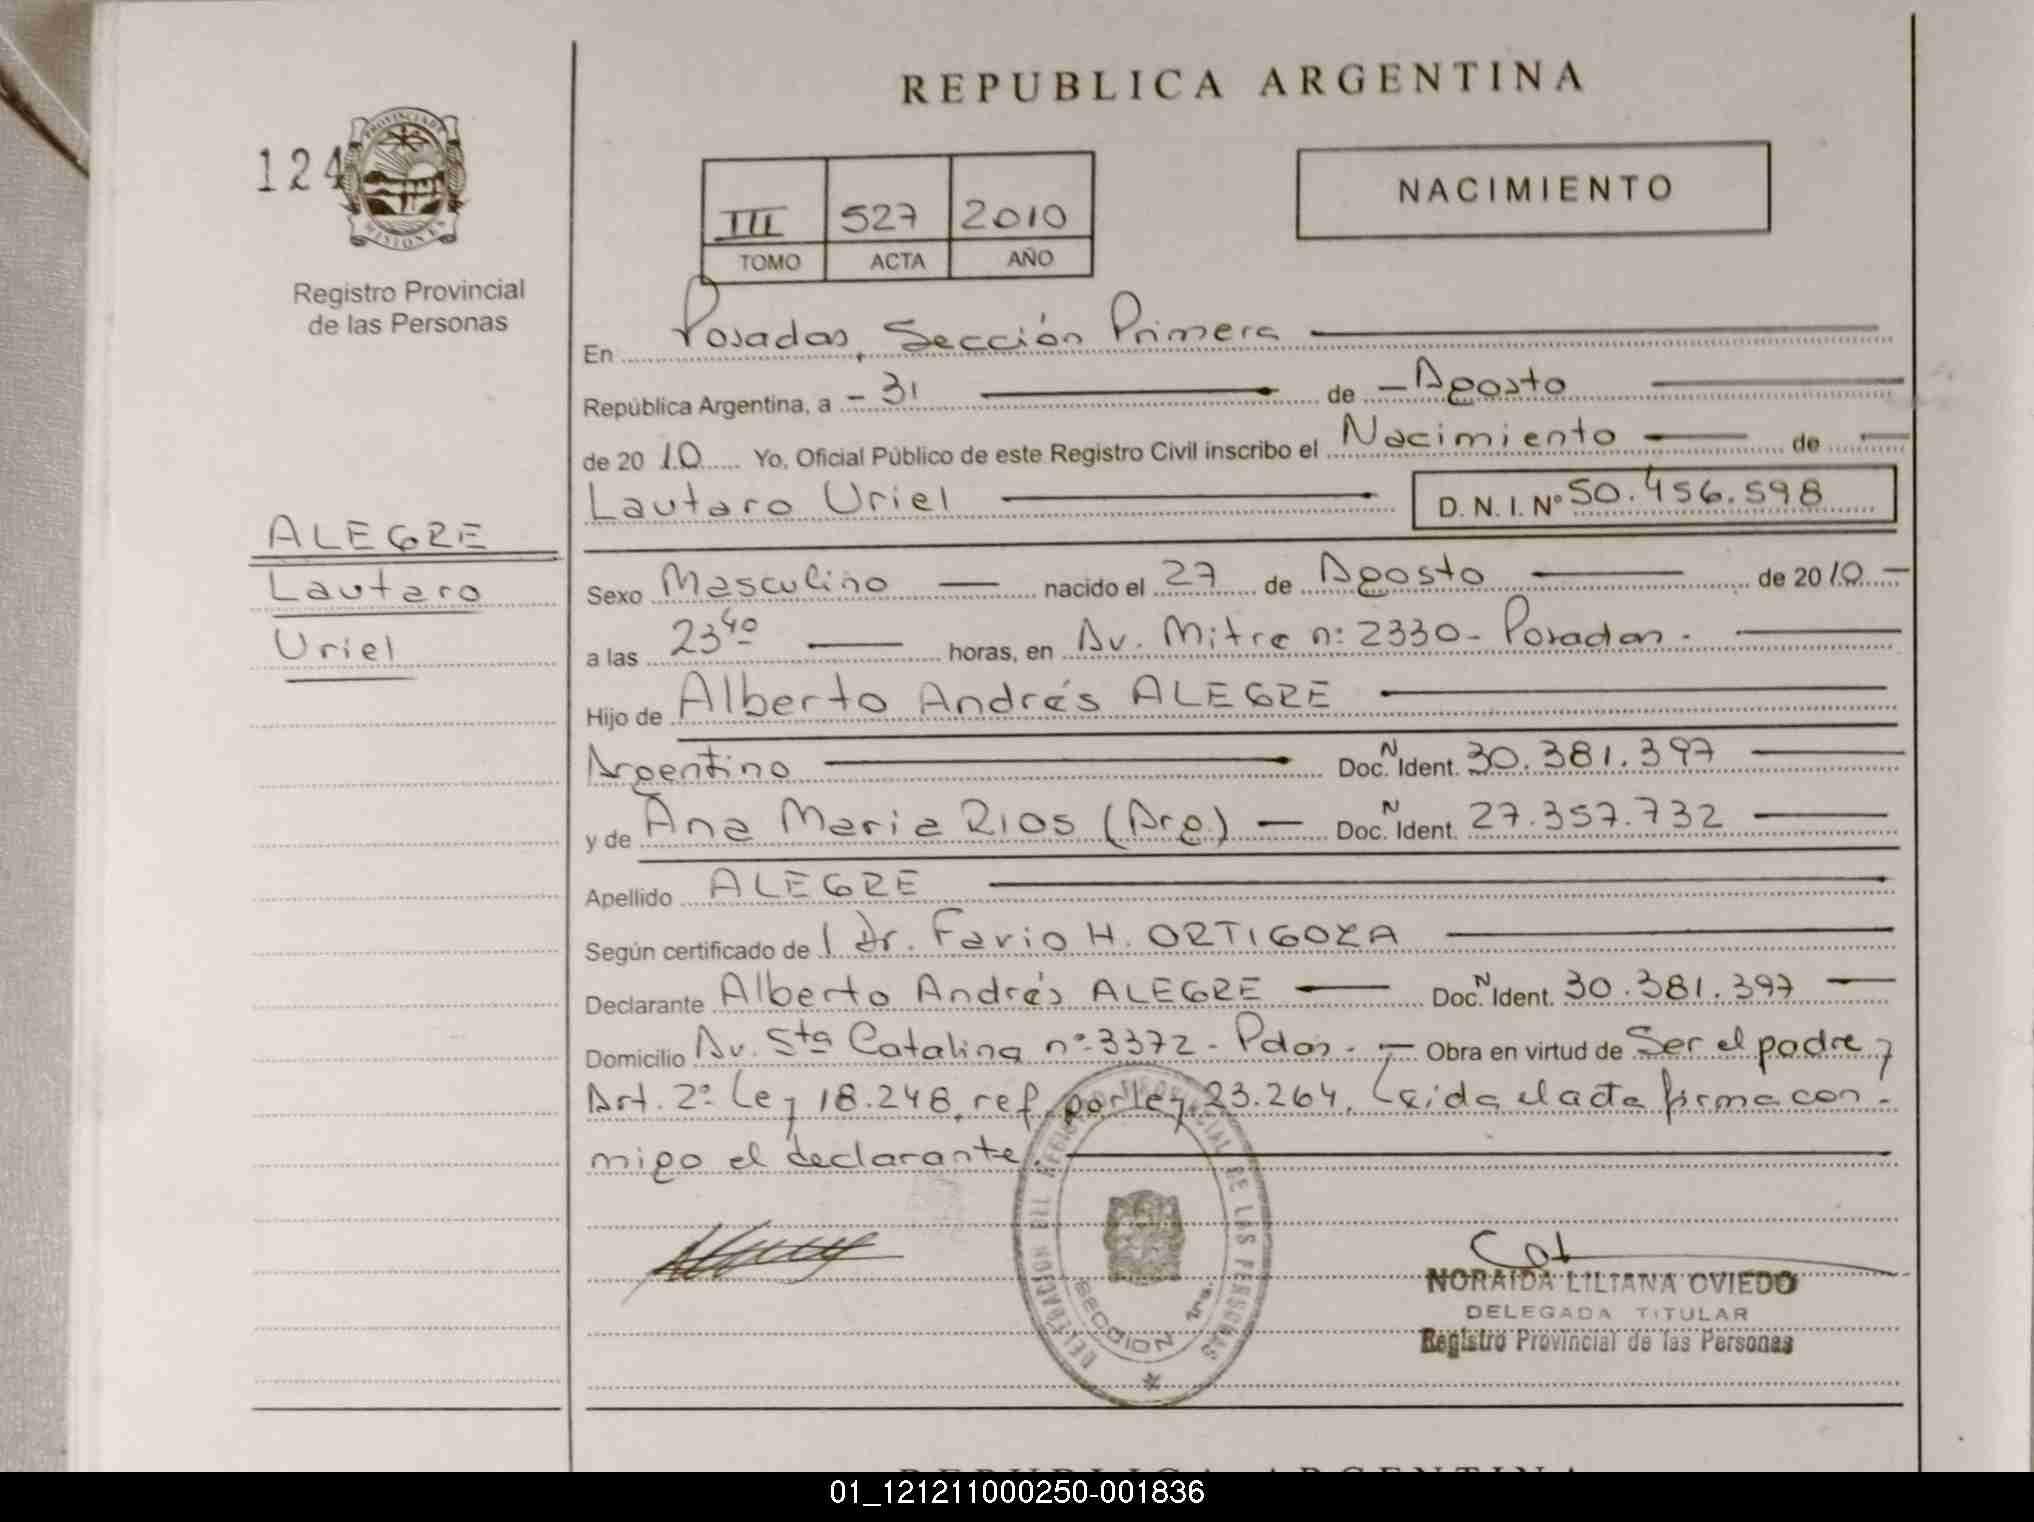 REPUBLICA ARGENTINA
124
PROVINCIA DE MISIONES
Registro Provincial
de las Personas
III 527 2010
TOMO ACTA AÑO
NACIMIENTO
En Posadas, Sección Primera
República Argentina, a - 31 de - Agosto
de 2010 Yo, Oficial Público de este Registro Civil inscribo el Nacimiento de
Lautaro Uriel D. N. I. Nº 50.456.598
ALEGRE
Lautaro
Uriel
Sexo Masculino nacido el 27 de Agosto de 2010 -
a las 23 40 horas, en Av. Mitre nº 2330 - Posadas -
Hijo de Alberto Andrés ALEGRE
Argentino Doc. N Ident. 30.381.397
y de Ana Maria RIOS (Arg.) Doc. N Ident. 27.357.732
Apellido ALEGRE
Según certificado de l Dr. Favio H. ORTIGOZA
Declarante Alberto Andrés ALEGRE Doc. N Ident. 30.381.397
Domicilio Av. Sta Catalina nº 3372 - Pdas. - Obra en virtud de Ser el padre y
Art. 2º Ley 18.248, ref. por ley 23.264. Leida el acta firma con-
migo el declarante.
DELEGACION DEL REGISTRO PROVINCIAL DE LAS PERSONAS
SECCION 1ra.
NORAIDA LILIANA OVIEDO
DELEGADA TITULAR
Registro Provincial de las Personas
REPUBLICA ARGENTINA
01_121211000250-001836